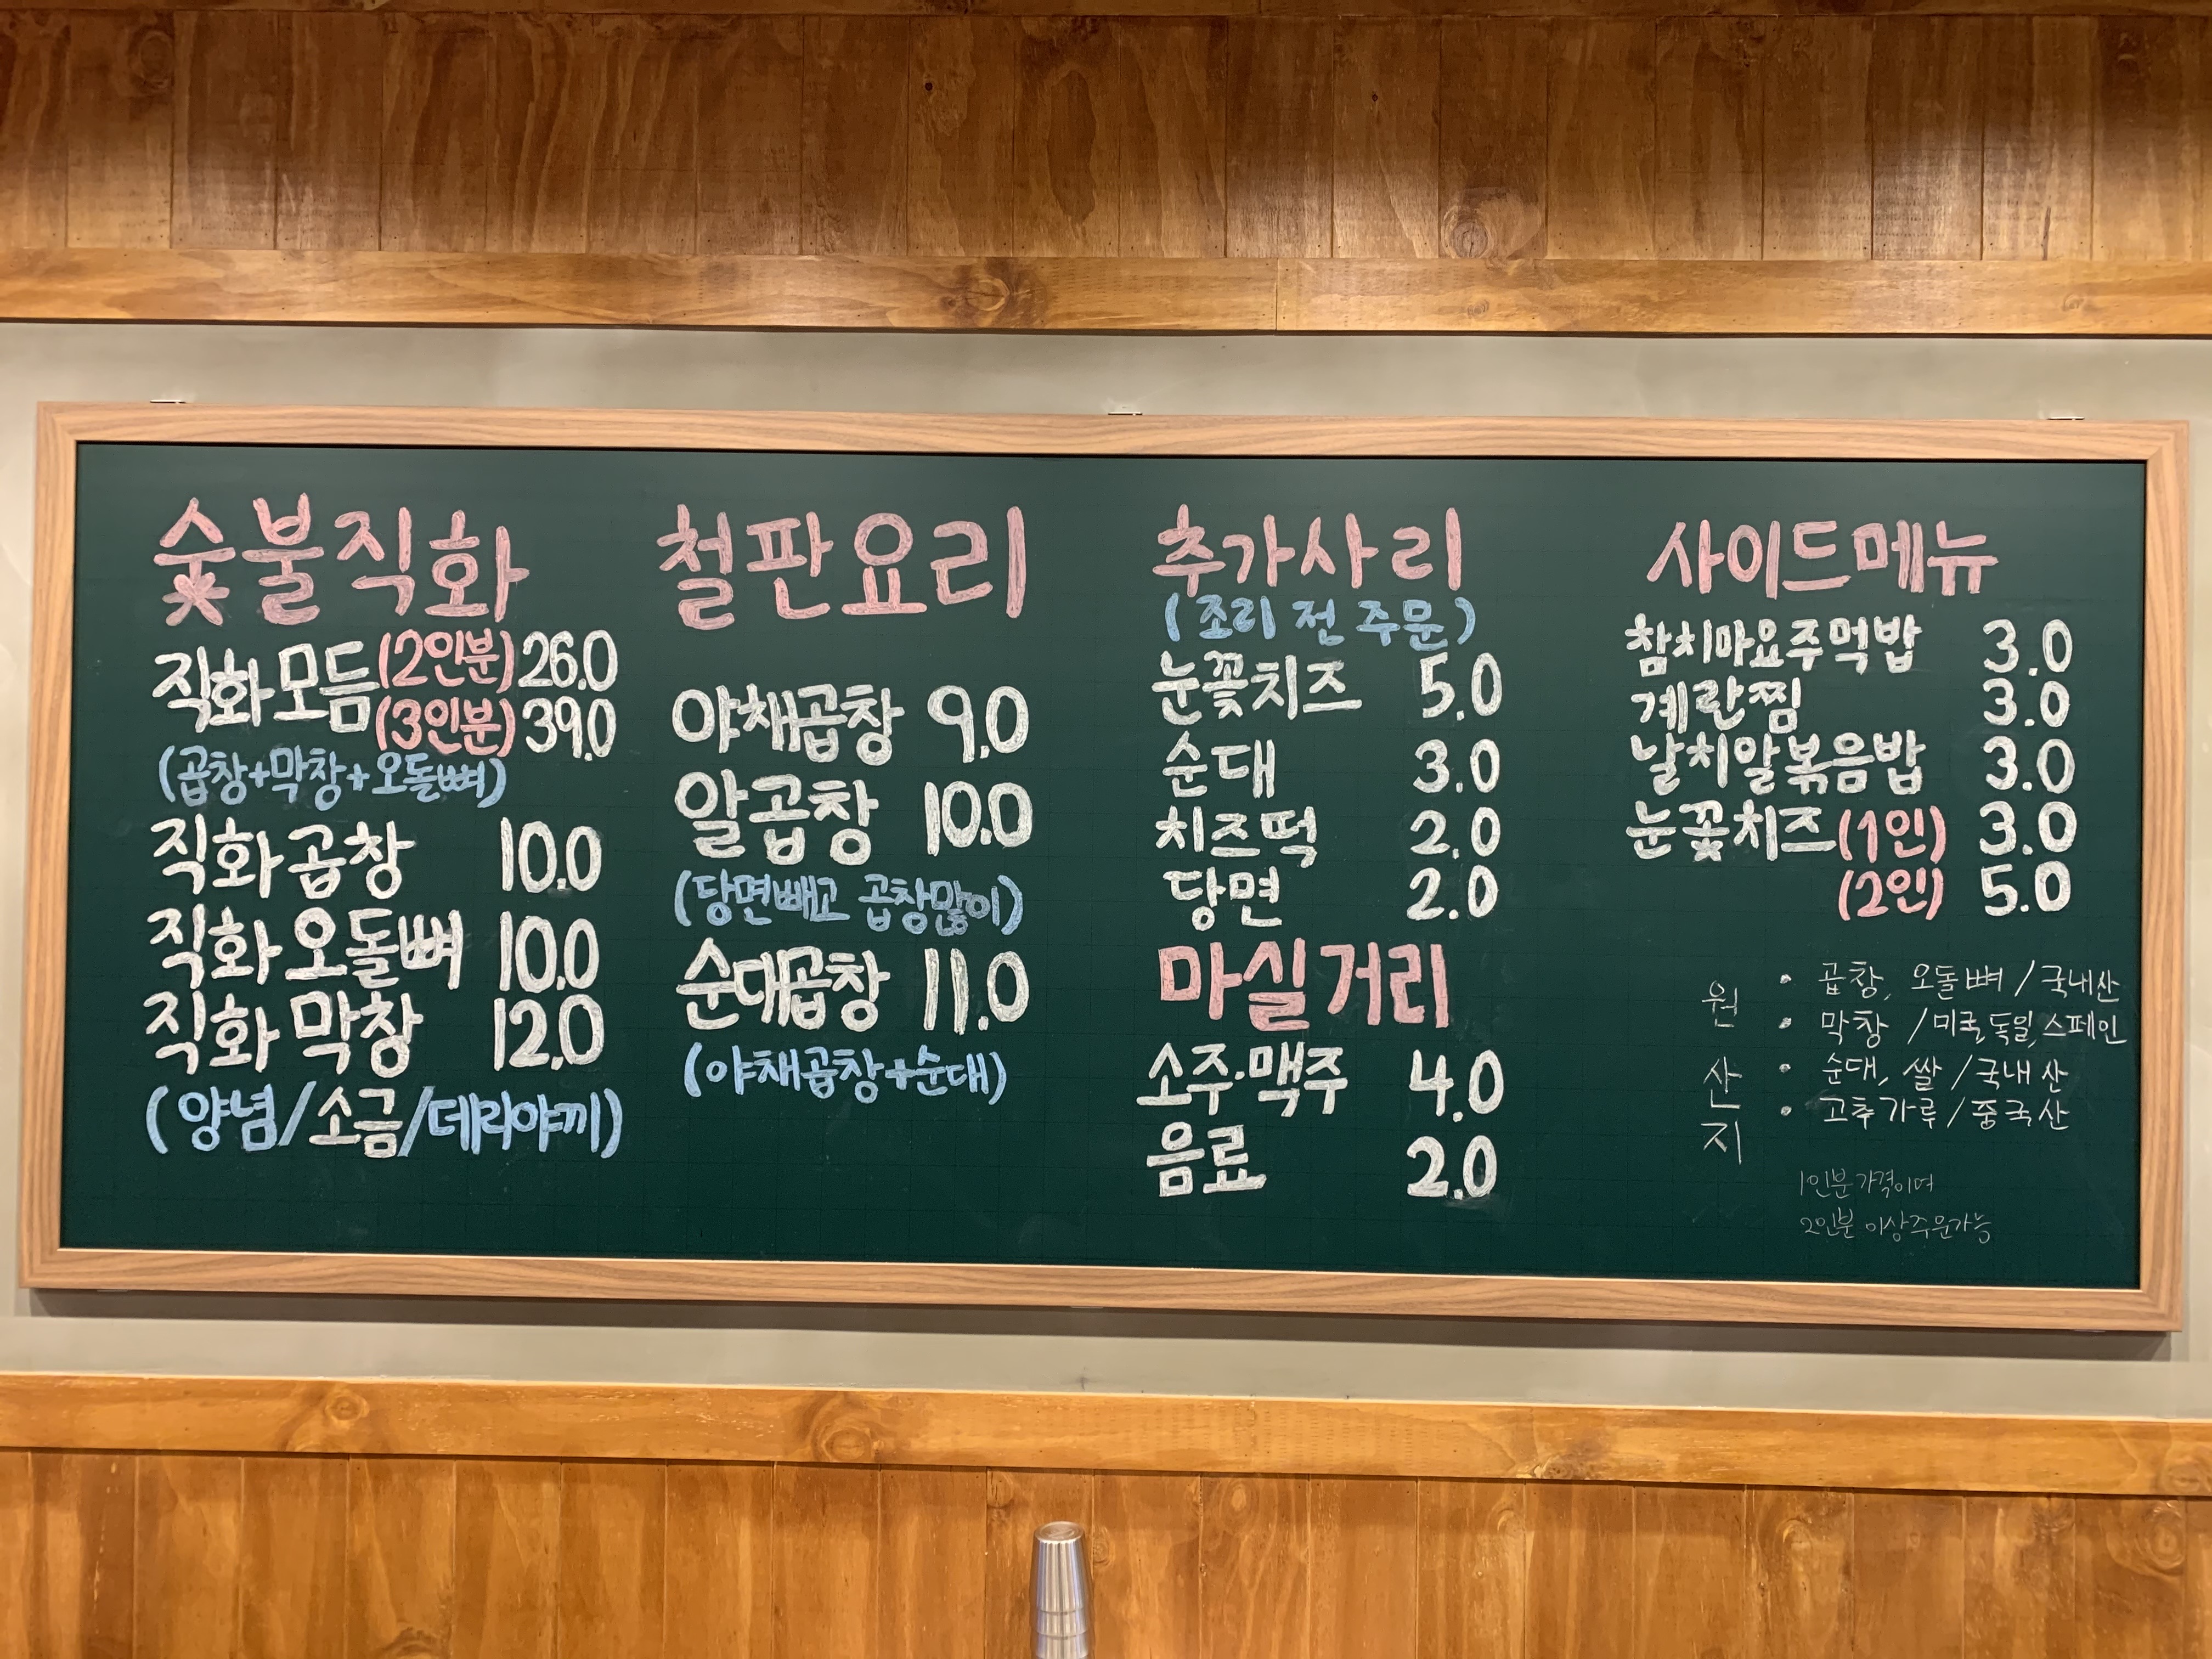 숯불직화
직화모듬(2인분) 26.0
(3인분) 39.0
(곱창+막창+오돌뼈)
직화곱창 10.0
직화오돌뼈 10.0
직화막창 12.0
(양념/소금/데리야끼)
철판요리
야채곱창 9.0
알곱창 10.0
(당면빼고 곱창많이)
순대곱창 11.0
(야채곱창+순대)
추가사리
(조리 전 주문)
눈꽃치즈 5.0
순대 3.0
치즈떡 2.0
당면 2.0
마실거리
소주·맥주 4.0
음료 2.0
사이드메뉴
참치마요주먹밥 3.0
계란찜 3.0
날치알볶음밥 3.0
눈꽃치즈(1인) 3.0
(2인) 5.0
원산지
• 곱창, 오돌뼈/국내산
• 막창/미국,독일,스페인
• 순대, 쌀/국내산
• 고추가루/중국산
1인분가격이며
2인분 이상주문가능